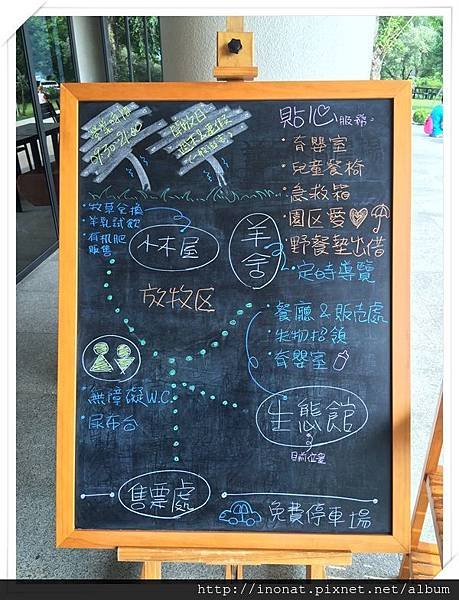 營業時間
09:30-21:00
開放日
貼心服務
・育嬰室
・兒童餐椅
・急救箱
・園区愛♡傘
・野餐墊出借
・定時導覽
・牧草兌換
・羊乳試飲
・有机肥
販售
小木屋
羊舍
放牧区
・餐廳 & 販売處
・失物招領
・育嬰室
・無障礙W.C.
・尿布台
生態館
目前位置
售票處
免費停車場
http://inonat.pixnet.net/album